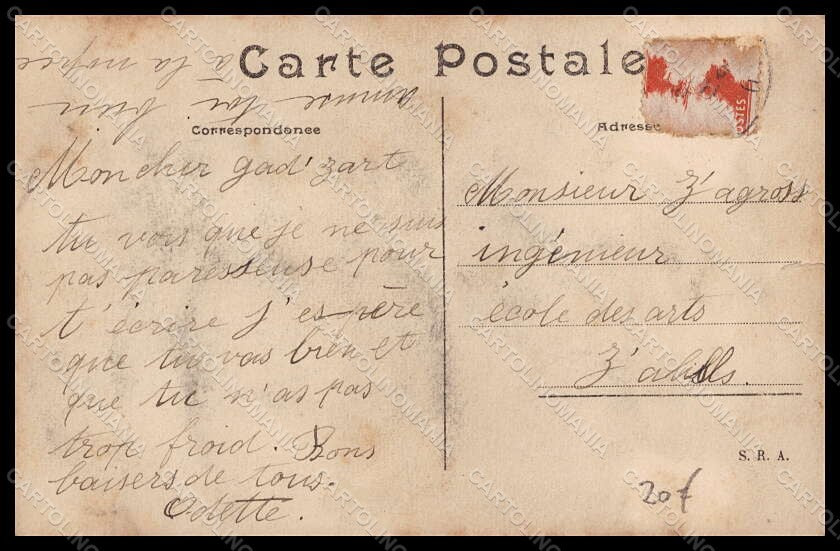 Carte Postale
Correspondance
Adresse
POSTES
Mon cher gad'zart
tu vois que je ne suis
pas paresseuse pour
t'écrire j'espère
que tu vas bien et
que tu n'as pas
trop froid. Bons
baisers de tous.
Odette.
amuse toi bien
à la
Monsieur Z'agross
ingénieur
école des arts
S. R. A.
20f
CARTOLINOMANIA